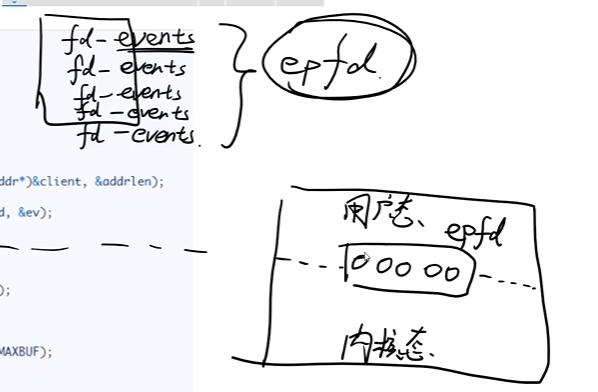 fd-events
fd-events
fd-events
fd-events
fd-events.
epfd.
ddr*)&client, &addrlen);
d, &ev);
);
MAXBUF);
用户态、
epfd
00000
内核态.